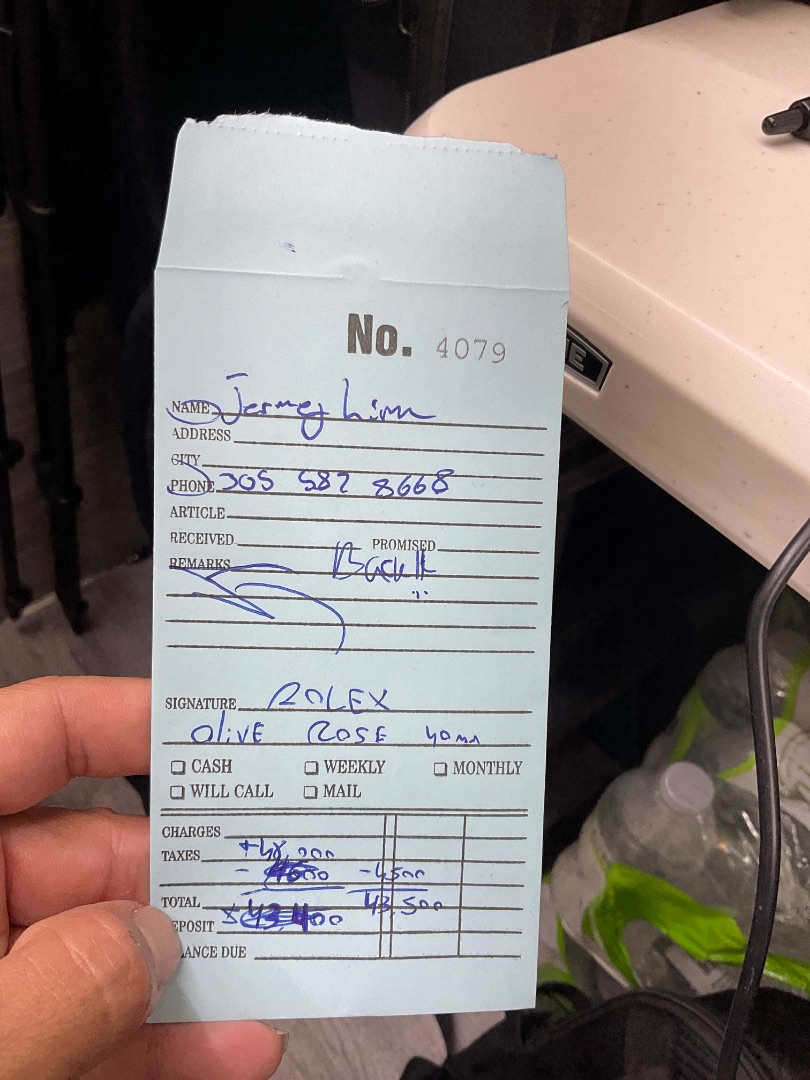 No. 4079
NAME Jermey Limn
ADDRESS
CITY
PHONE 305 582 8668
ARTICLE
RECEIVED PROMISED
REMARKS Back!!
SIGNATURE ROLEX
OLIVE ROSE 40mm
CASH WEEKLY MONTHLY
WILL CALL MAIL
CHARGES
TAXES +48,000
- -4,500
TOTAL 43,500
EPOSIT
ANCE DUE